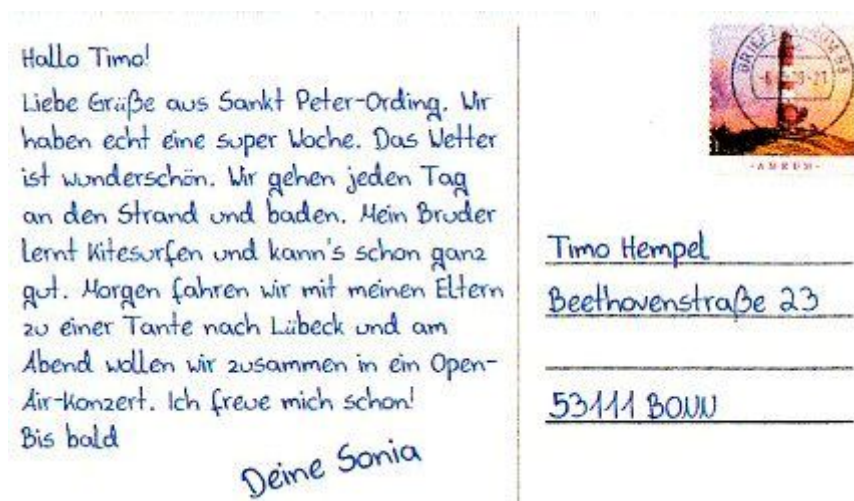 Hallo Timo!
Liebe Grüße aus Sankt Peter-Ording. Wir
haben echt eine super Woche. Das Wetter
ist wunderschön. Wir gehen jeden Tag
an den Strand und baden. Mein Bruder
lernt Kitesurfen und kann's schon ganz
gut. Morgen fahren wir mit meinen Eltern
zu einer Tante nach Lübeck und am
Abend wollen wir zusammen in ein Open-
Air-Konzert. Ich freue mich schon!
Bis bald
Deine Sonia
BRIEFZENTRUM
-AMRUM-
Timo Hempel
Beethovenstraße 23
53111 BONN